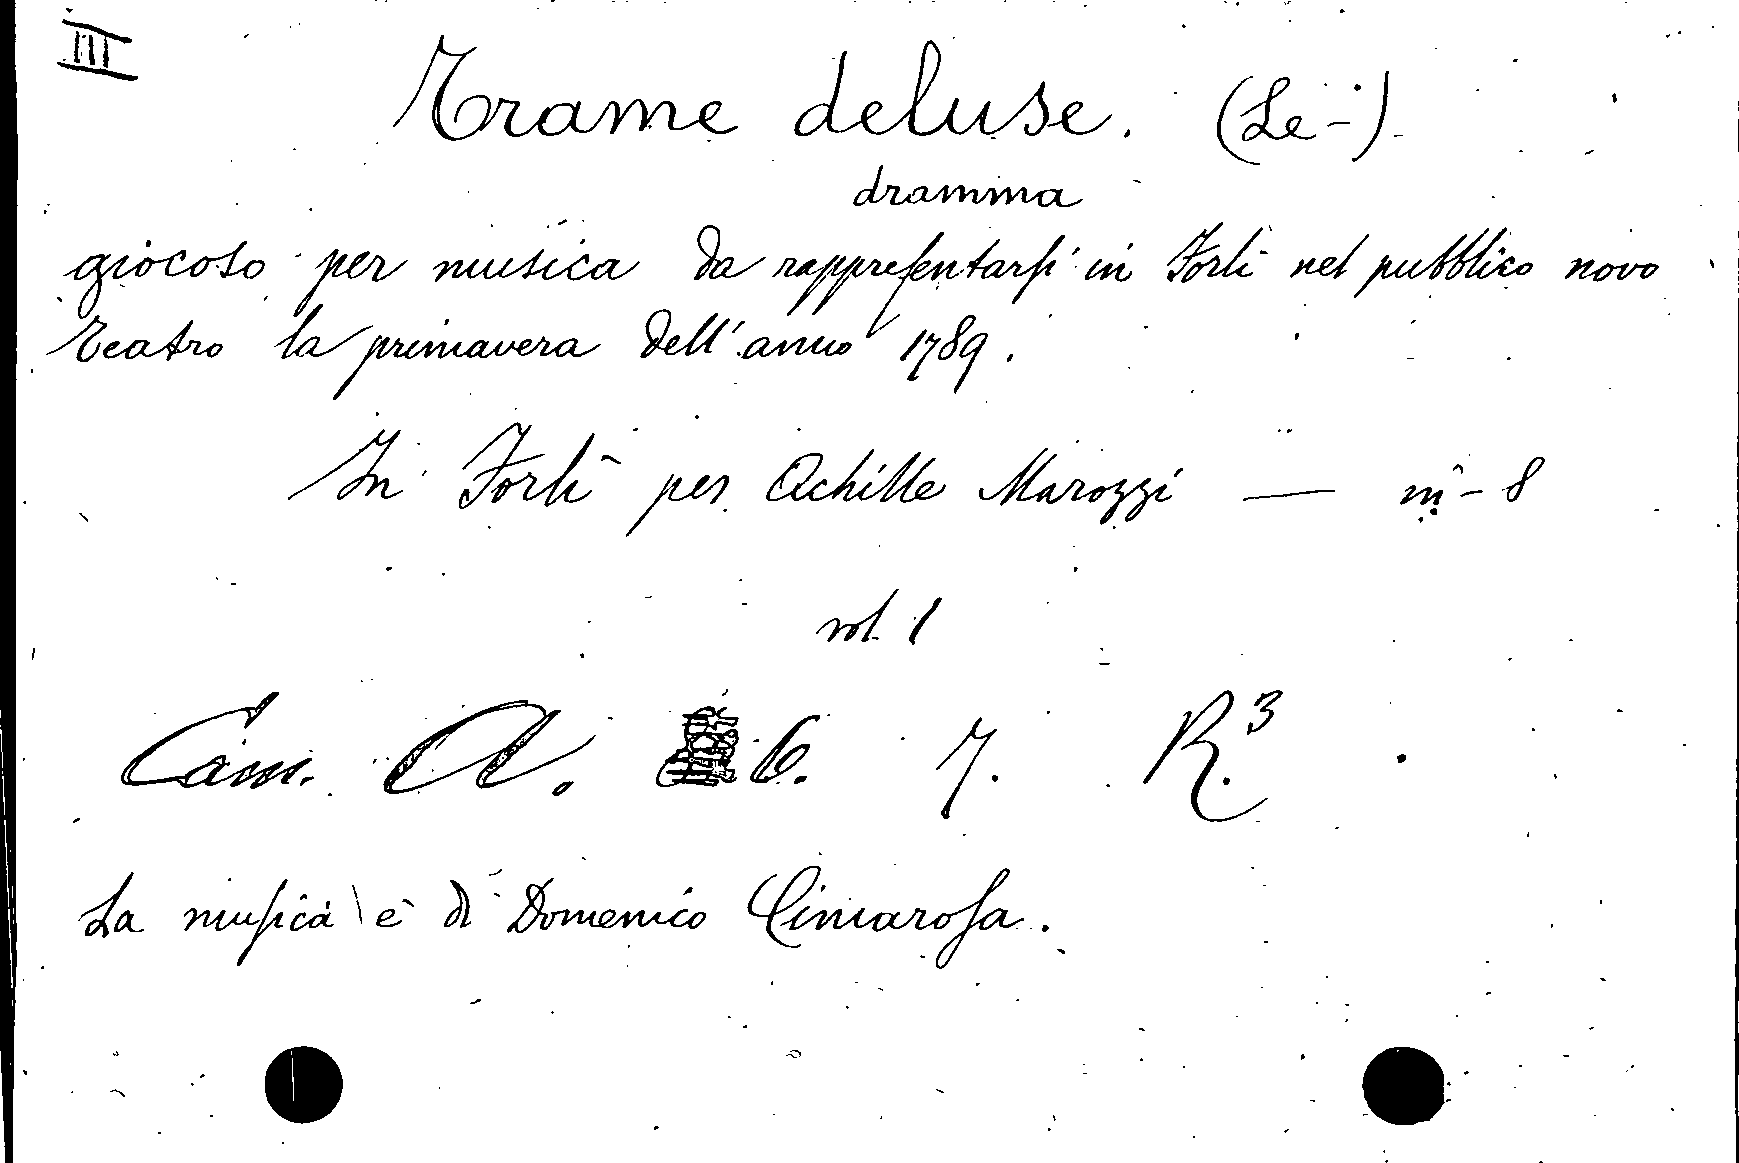 III
Trame deluse. (Le-)
dramma
giocoso per musica da rappreſentarſi in Forlì nel pubblico novo
teatro la primavera dell'anno 1789.
In Forlì per Achille Marozzi — in-8
vol. 1
Cam. A. 6. 7. R.3
La muſica è di Domenico Cimaroſa.